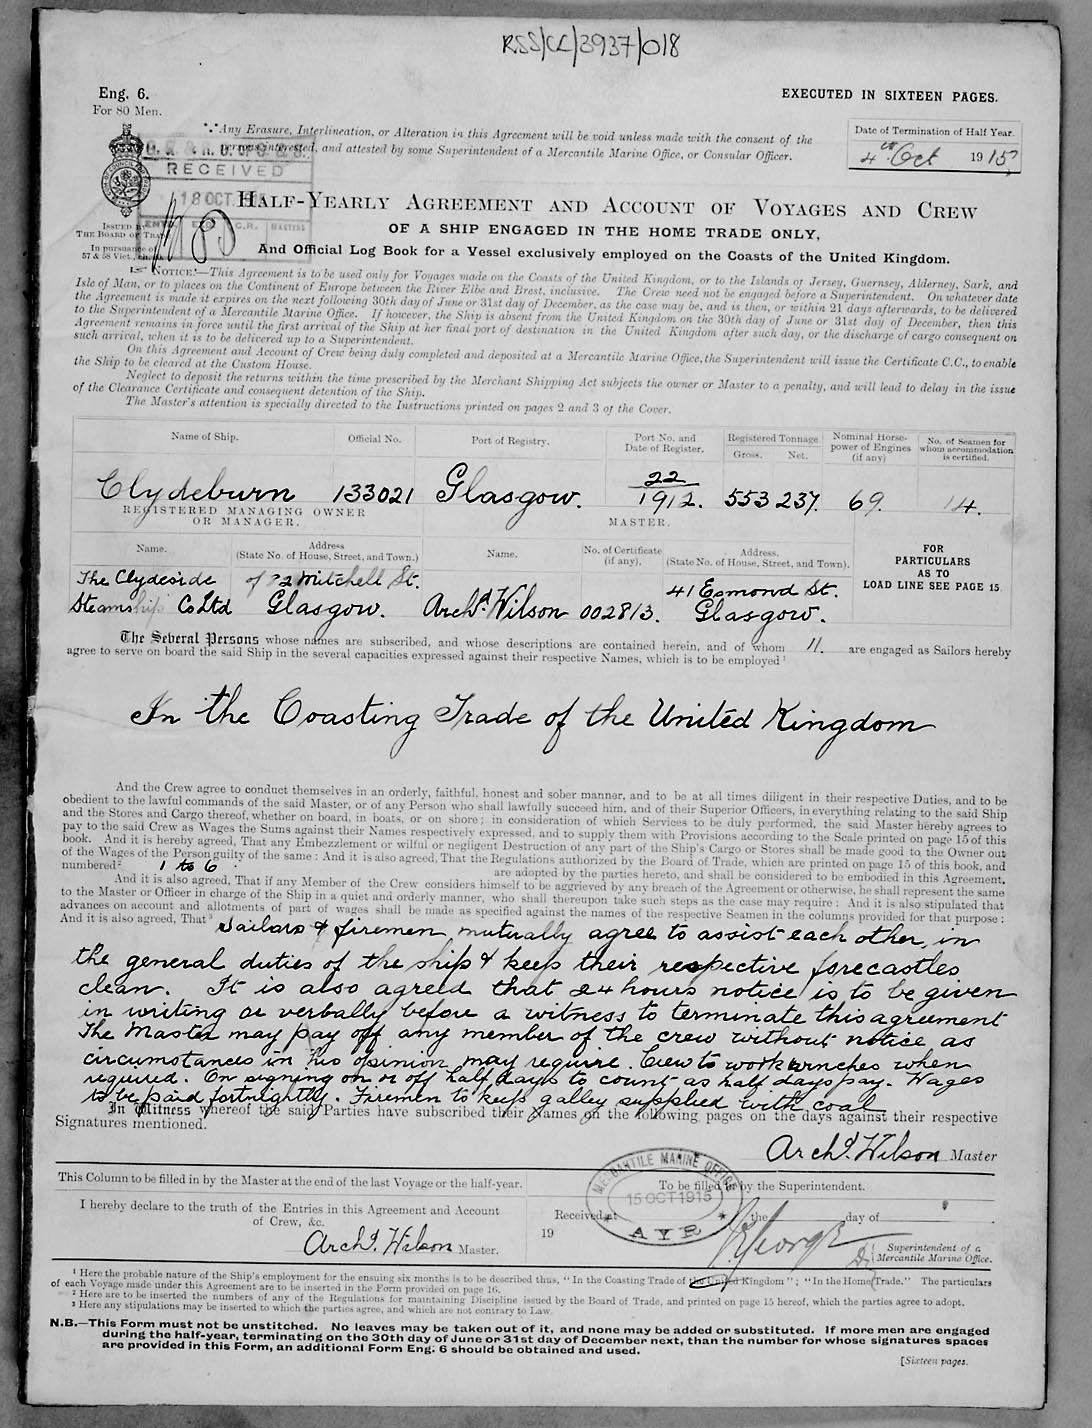 RSS/CL/3937/018
Eng. 6.
For 80 Men.
EXECUTED IN SIXTEEN PAGES.
Any Erasure, Interlineation, or Alteration in this Agreement will be void unless made with the consent of the
persons interested, and attested by some Superintendent of a Mercantile Marine Office, or Consular Officer.
Date of Termination of Half Year.
4th Oct 1915
RECEIVED
18 OCT.
HALF-YEARLY AGREEMENT AND ACCOUNT OF VOYAGES AND CREW
OF A SHIP ENGAGED IN THE HOME TRADE ONLY,
And Official Log Book for a Vessel exclusively employed on the Coasts of the United Kingdom.
ISSUED BY
THE BOARD OF TRADE
In pursuance of
57 & 58 Vict.,
NOTICE.—This Agreement is to be used only for Voyages made on the Coasts of the United Kingdom, or to the Islands of Jersey, Guernsey, Alderney, Sark, and
Isle of Man, or to places on the Continent of Europe between the River Elbe and Brest, inclusive. The Crew need not be engaged before a Superintendent. On whatever date
the Agreement is made it expires on the next following 30th day of June or 31st day of December, as the case may be, and is then, or within 21 days afterwards, to be delivered
to the Superintendent of a Mercantile Marine Office. If however, the Ship is absent from the United Kingdom on the 30th day of June or 31st day of December, then this
Agreement remains in force until the first arrival of the Ship at her final port of destination in the United Kingdom after such day, or the discharge of cargo consequent on
such arrival, when it is to be delivered up to a Superintendent.
On this Agreement and Account of Crew being duly completed and deposited at a Mercantile Marine Office, the Superintendent will issue the Certificate C.C., to enable
the Ship to be cleared at the Custom House.
Neglect to deposit the returns within the time prescribed by the Merchant Shipping Act subjects the owner or Master to a penalty, and will lead to delay in the issue
of the Clearance Certificate and consequent detention of the Ship.
The Master's attention is specially directed to the Instructions printed on pages 2 and 3 of the Cover.
Name of Ship. Official No. Port of Registry. Port No. and Date of Register. Registered Tonnage Gross. Net. Nominal Horse-power of Engines (if any) No. of Seamen for whom accommodation is certified.
Clydeburn 133021 Glasgow. 22/1912. 553 237. 69. 14.
REGISTERED MANAGING OWNER
OR MANAGER.
MASTER.
Name. Address (State No. of House, Street, and Town.) Name. No. of Certificate (if any). Address. (State No. of House, Street, and Town).
FOR
PARTICULARS
AS TO
LOAD LINE SEE PAGE 15
The Clydeside of 72 Mitchell St. 41 Esmond St.
Steamship Co Ltd Glasgow. Archd. Wilson 002813. Glasgow.
The Several Persons whose names are subscribed, and whose descriptions are contained herein, and of whom 11. are engaged as Sailors hereby
agree to serve on board the said Ship in the several capacities expressed against their respective Names, which is to be employed 1
In the Coasting Trade of the United Kingdom
And the Crew agree to conduct themselves in an orderly, faithful, honest and sober manner, and to be at all times diligent in their respective Duties, and to be
obedient to the lawful commands of the said Master, or of any Person who shall lawfully succeed him, and of their Superior Officers, in everything relating to the said Ship
and the Stores and Cargo thereof, whether on board, in boats, or on shore; in consideration of which Services to be duly performed, the said Master hereby agrees to
pay to the said Crew as Wages the Sums against their Names respectively expressed, and to supply them with Provisions according to the Scale printed on page 15 of this
book. And it is hereby agreed, That any Embezzlement or wilful or negligent Destruction of any part of the Ship's Cargo or Stores shall be made good to the Owner out
of the Wages of the Person guilty of the same: And it is also agreed, That the Regulations authorized by the Board of Trade, which are printed on page 15 of this book, and
numbered 2 1 to 6 are adopted by the parties hereto, and shall be considered to be embodied in this Agreement.
And it is also agreed, That if any Member of the Crew considers himself to be aggrieved by any breach of the Agreement or otherwise, he shall represent the same
to the Master or Officer in charge of the Ship in a quiet and orderly manner, who shall thereupon take such steps as the case may require: And it is also stipulated that
advances on account and allotments of part of wages shall be made as specified against the names of the respective Seamen in the columns provided for that purpose:
And it is also agreed, That 3 Sailors & firemen mutually agree to assist each other in
the general duties of the ship & keep their respective forecastles
clean. It is also agreed that 24 hours notice is to be given
in writing or verbally before a witness to terminate this agreement
The Master may pay off any member of the crew without notice as
circumstances in his opinion may require. Crew to work winches when
required. On signing on or off half days to count as half days pay. Wages
to be paid fortnightly. Firemen to keep galley supplied with coal
In Witness whereof the said Parties have subscribed their Names on the following pages on the days against their respective
Signatures mentioned.
Archd. Wilson Master
This Column to be filled in by the Master at the end of the last Voyage or the half-year.
I hereby declare to the truth of the Entries in this Agreement and Account
of Crew, &c.
Archd. Wilson Master.
To be filled in by the Superintendent.
MERCANTILE MARINE OFFICE
15 OCT 1915
AYR
Received at the day of
19
George
Superintendent of a
Mercantile Marine Office.
1 Here the probable nature of the Ship's employment for the ensuing six months is to be described thus, "In the Coasting Trade of the United Kingdom"; "In the Home Trade." The particulars
of each Voyage made under this Agreement are to be inserted in the Form provided on page 16.
2 Here are to be inserted the numbers of any of the Regulations for maintaining Discipline issued by the Board of Trade, and printed on page 15 hereof, which the parties agree to adopt.
3 Here any stipulations may be inserted to which the parties agree, and which are not contrary to Law.
N.B.—This Form must not be unstitched. No leaves may be taken out of it, and none may be added or substituted. If more men are engaged
during the half-year, terminating on the 30th day of June or 31st day of December next, than the number for whose signatures spaces
are provided in this Form, an additional Form Eng. 6 should be obtained and used.
[Sixteen pages.